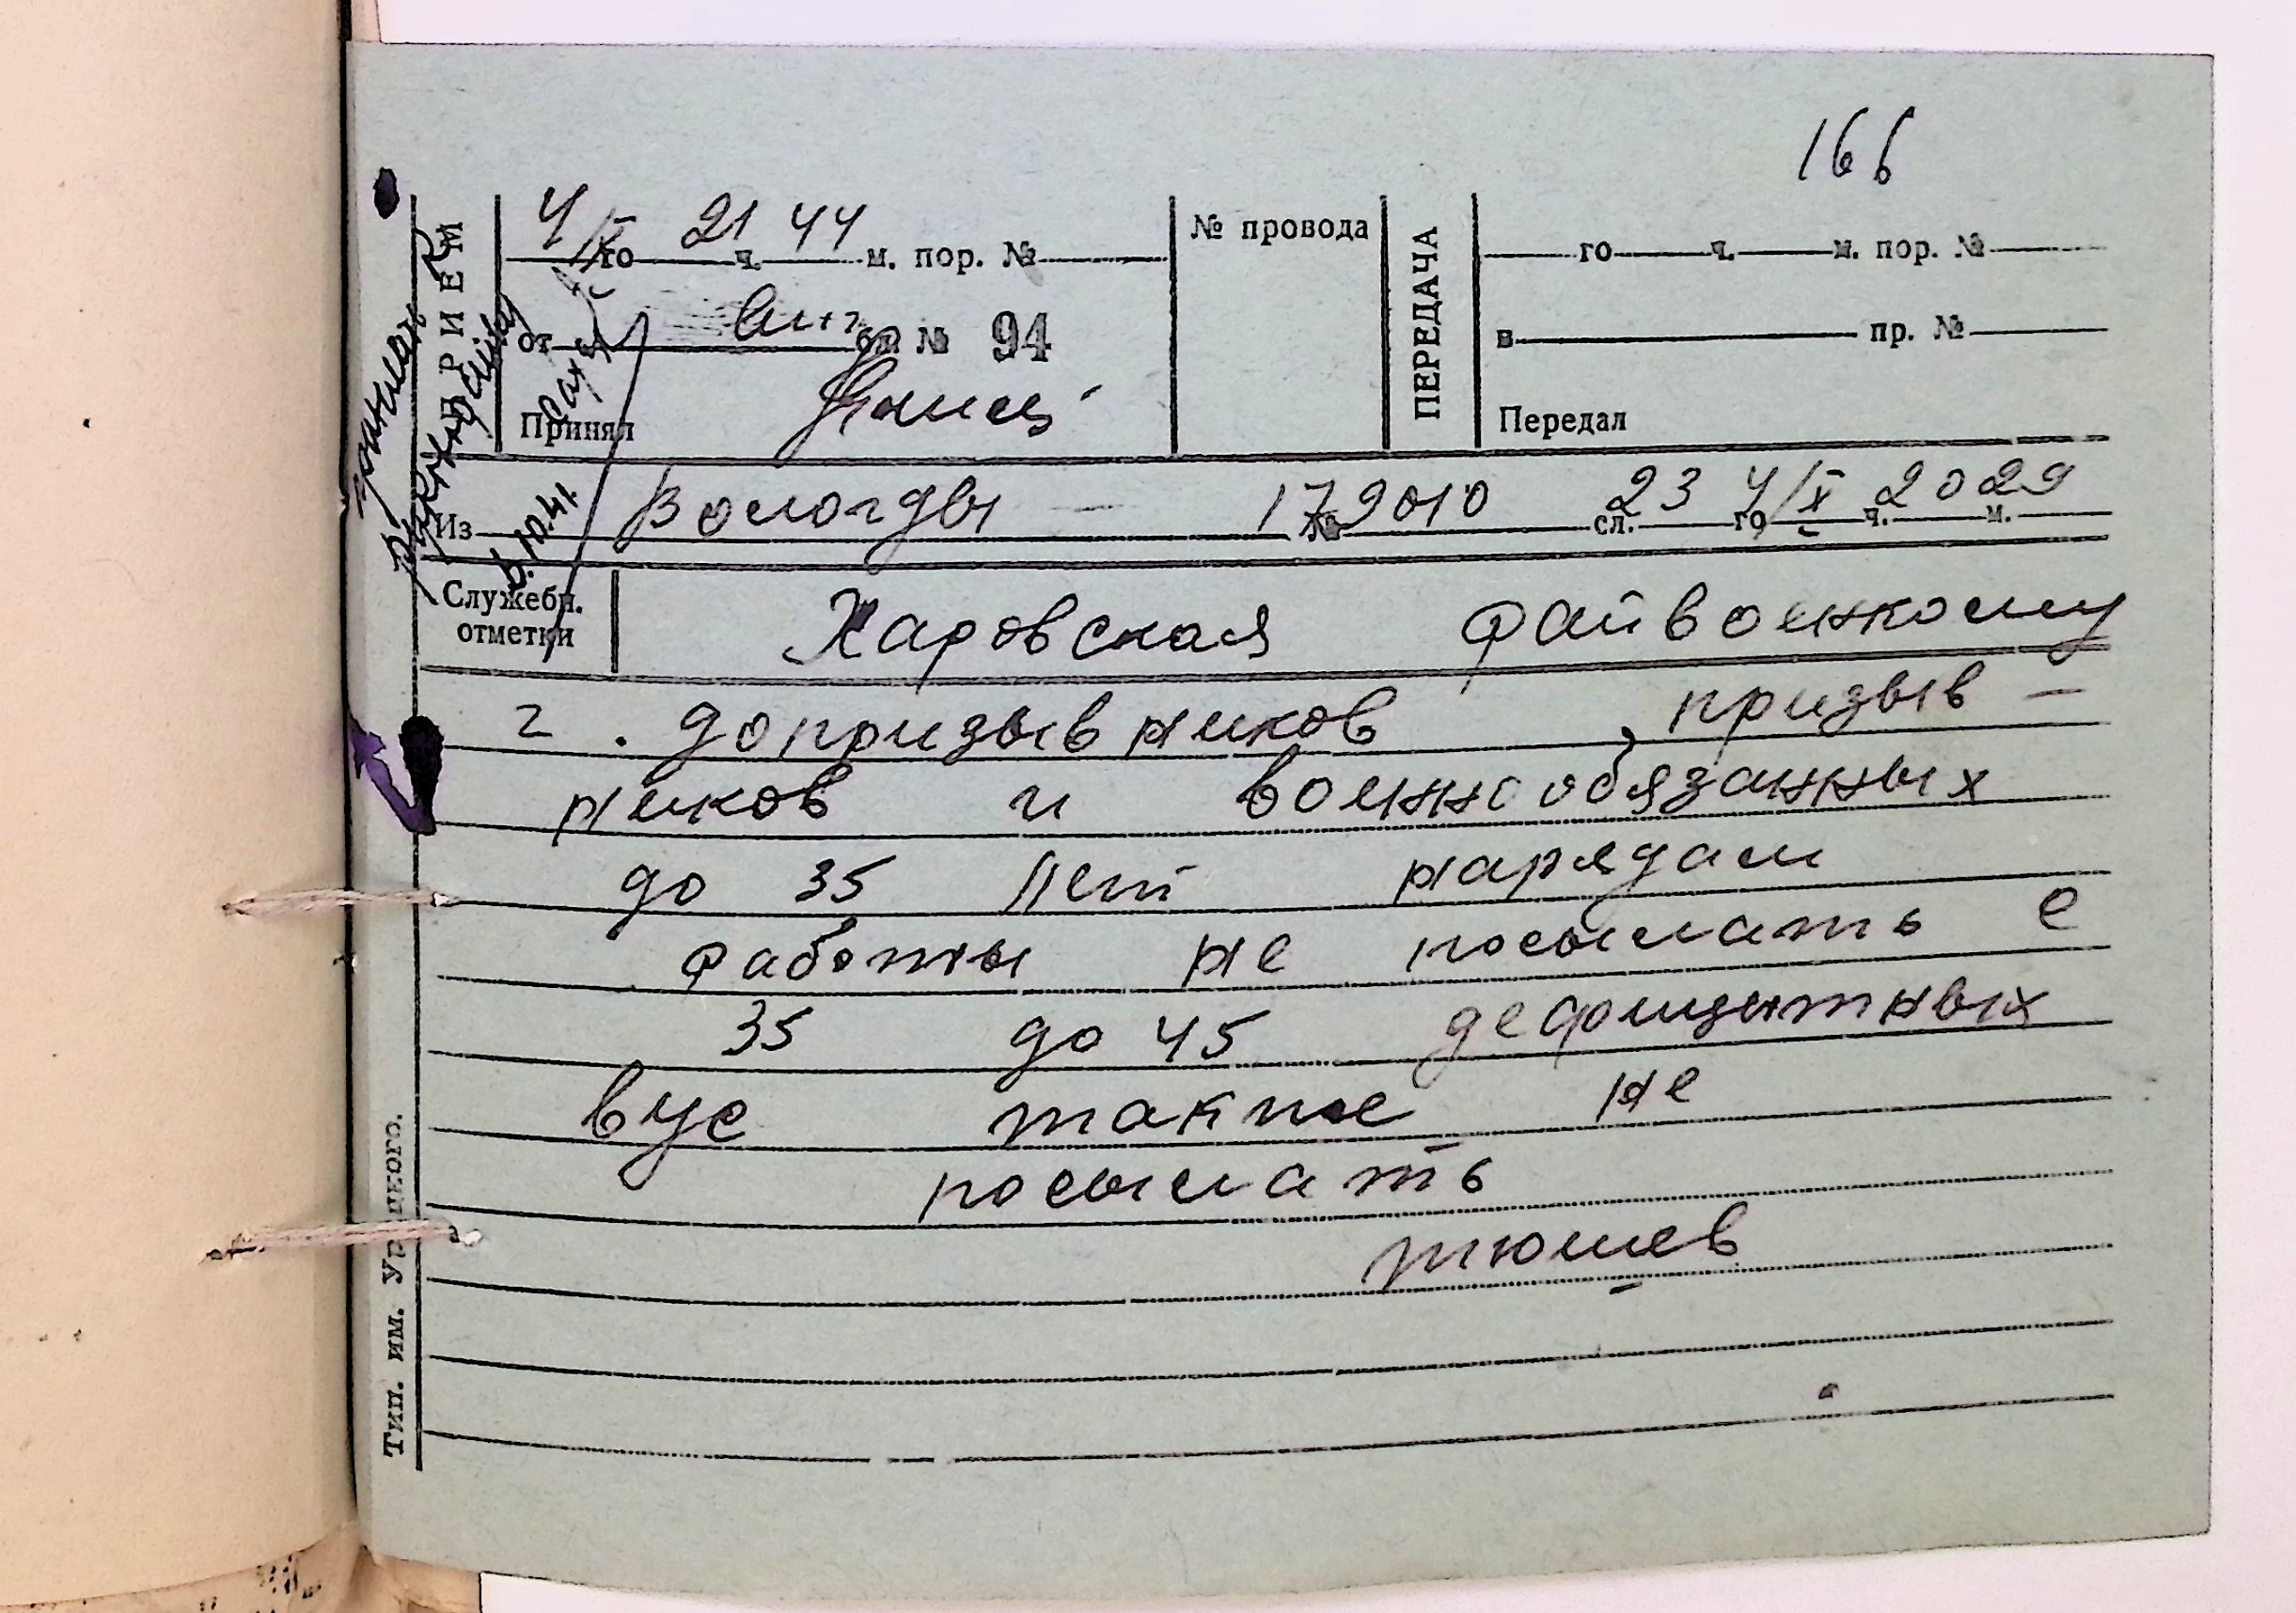 166
ПРИЕМ
4/X го 21 ч. 44 м. пор. №
от бл № 94
Принял
№ провода
ПЕРЕДАЧА
го ч. м. пор. №
в пр. №
Передал
6.10.41.
Из Вологды № 179010 сл. 23 4/X го 20 ч. 29 м.
Служебн. отметки
Харовская райвоенкому
2 . допризывников , призыв –
ников и военнообязанных
до 35 лет нарядам
работы не посылать с
35 до 45 дефицитных
вус также не
посылать
тюшев
Тип. им. Урицкого.